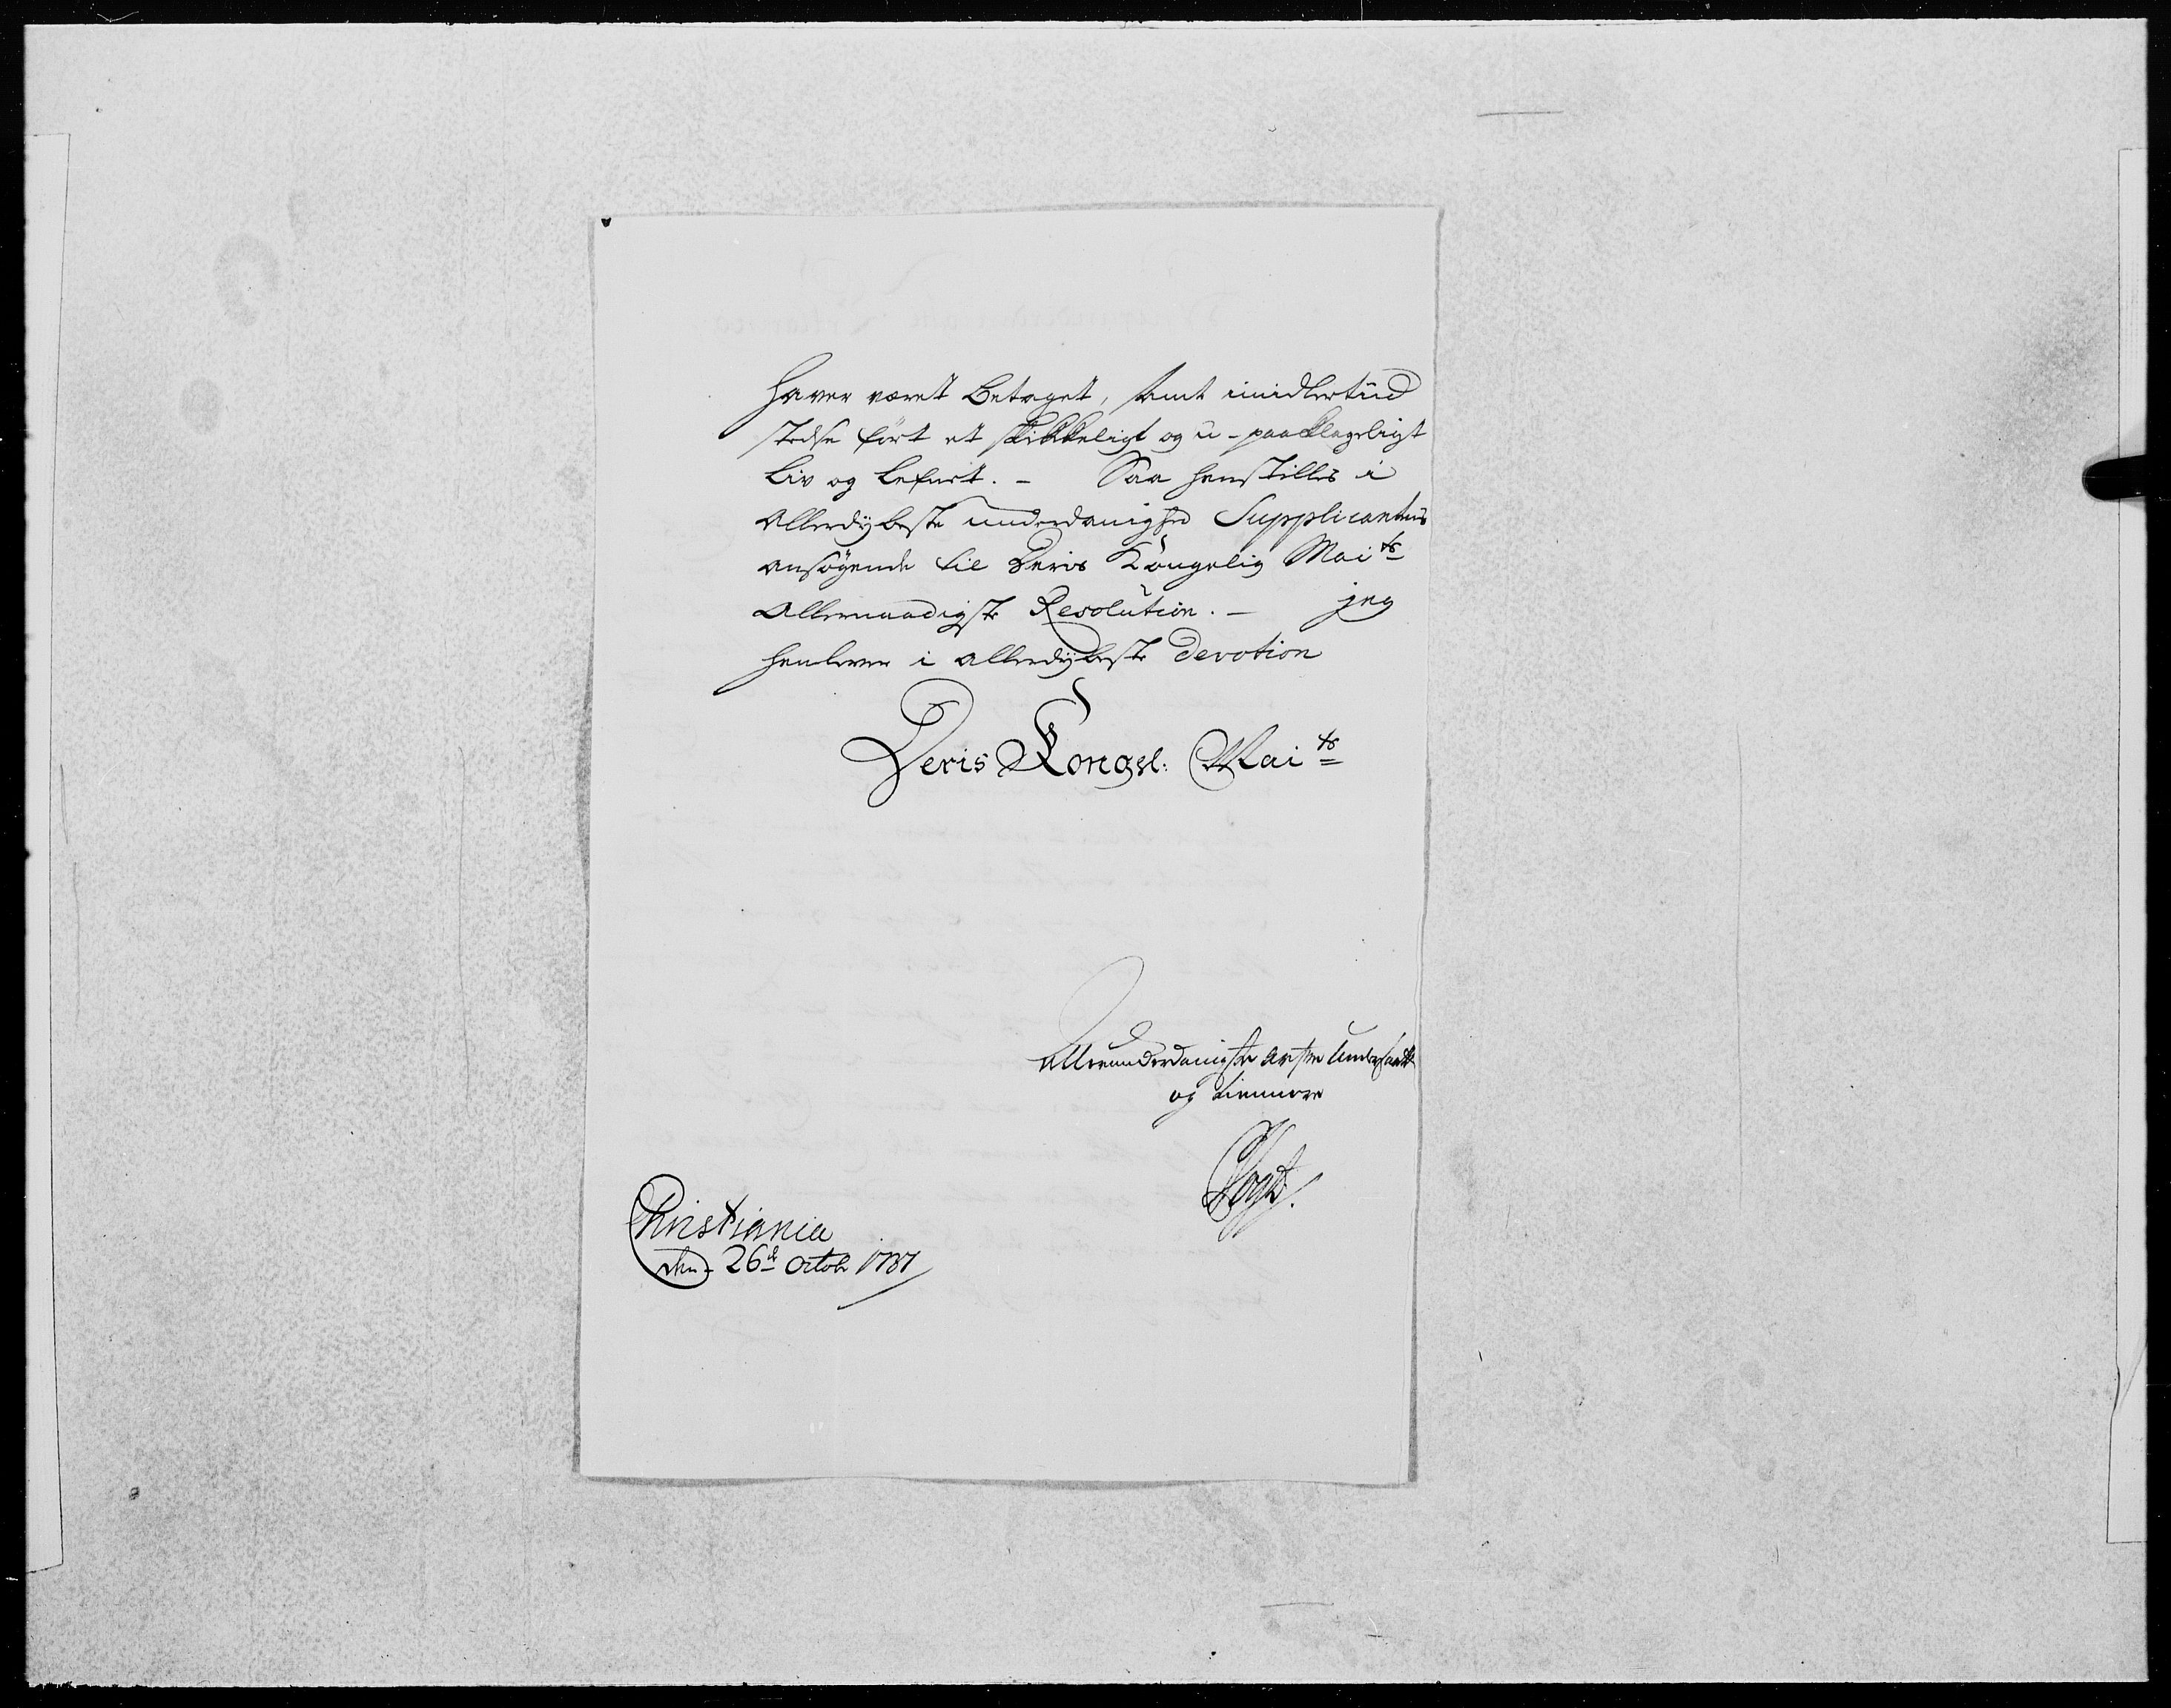 haver været betaget, samt imidlertiid
stedse ført et skikkeligt og u-paaklageligt
Liv og Lefnet. - Saa henstilles i
Allerdybeste underdanighed Supplicantens
ansøgende til Deris Kongelig Mai<sup>ts</sup>
Allernaadigste Resolution. - jeg
henlever i allerdybeste devotion
Deris Kongel: Mai<sup>ts</sup>
allerunderdanigste undersaatt
og tiennere
Vogt.
Christiania
den 26<sup>d</sup> Octobr 1737